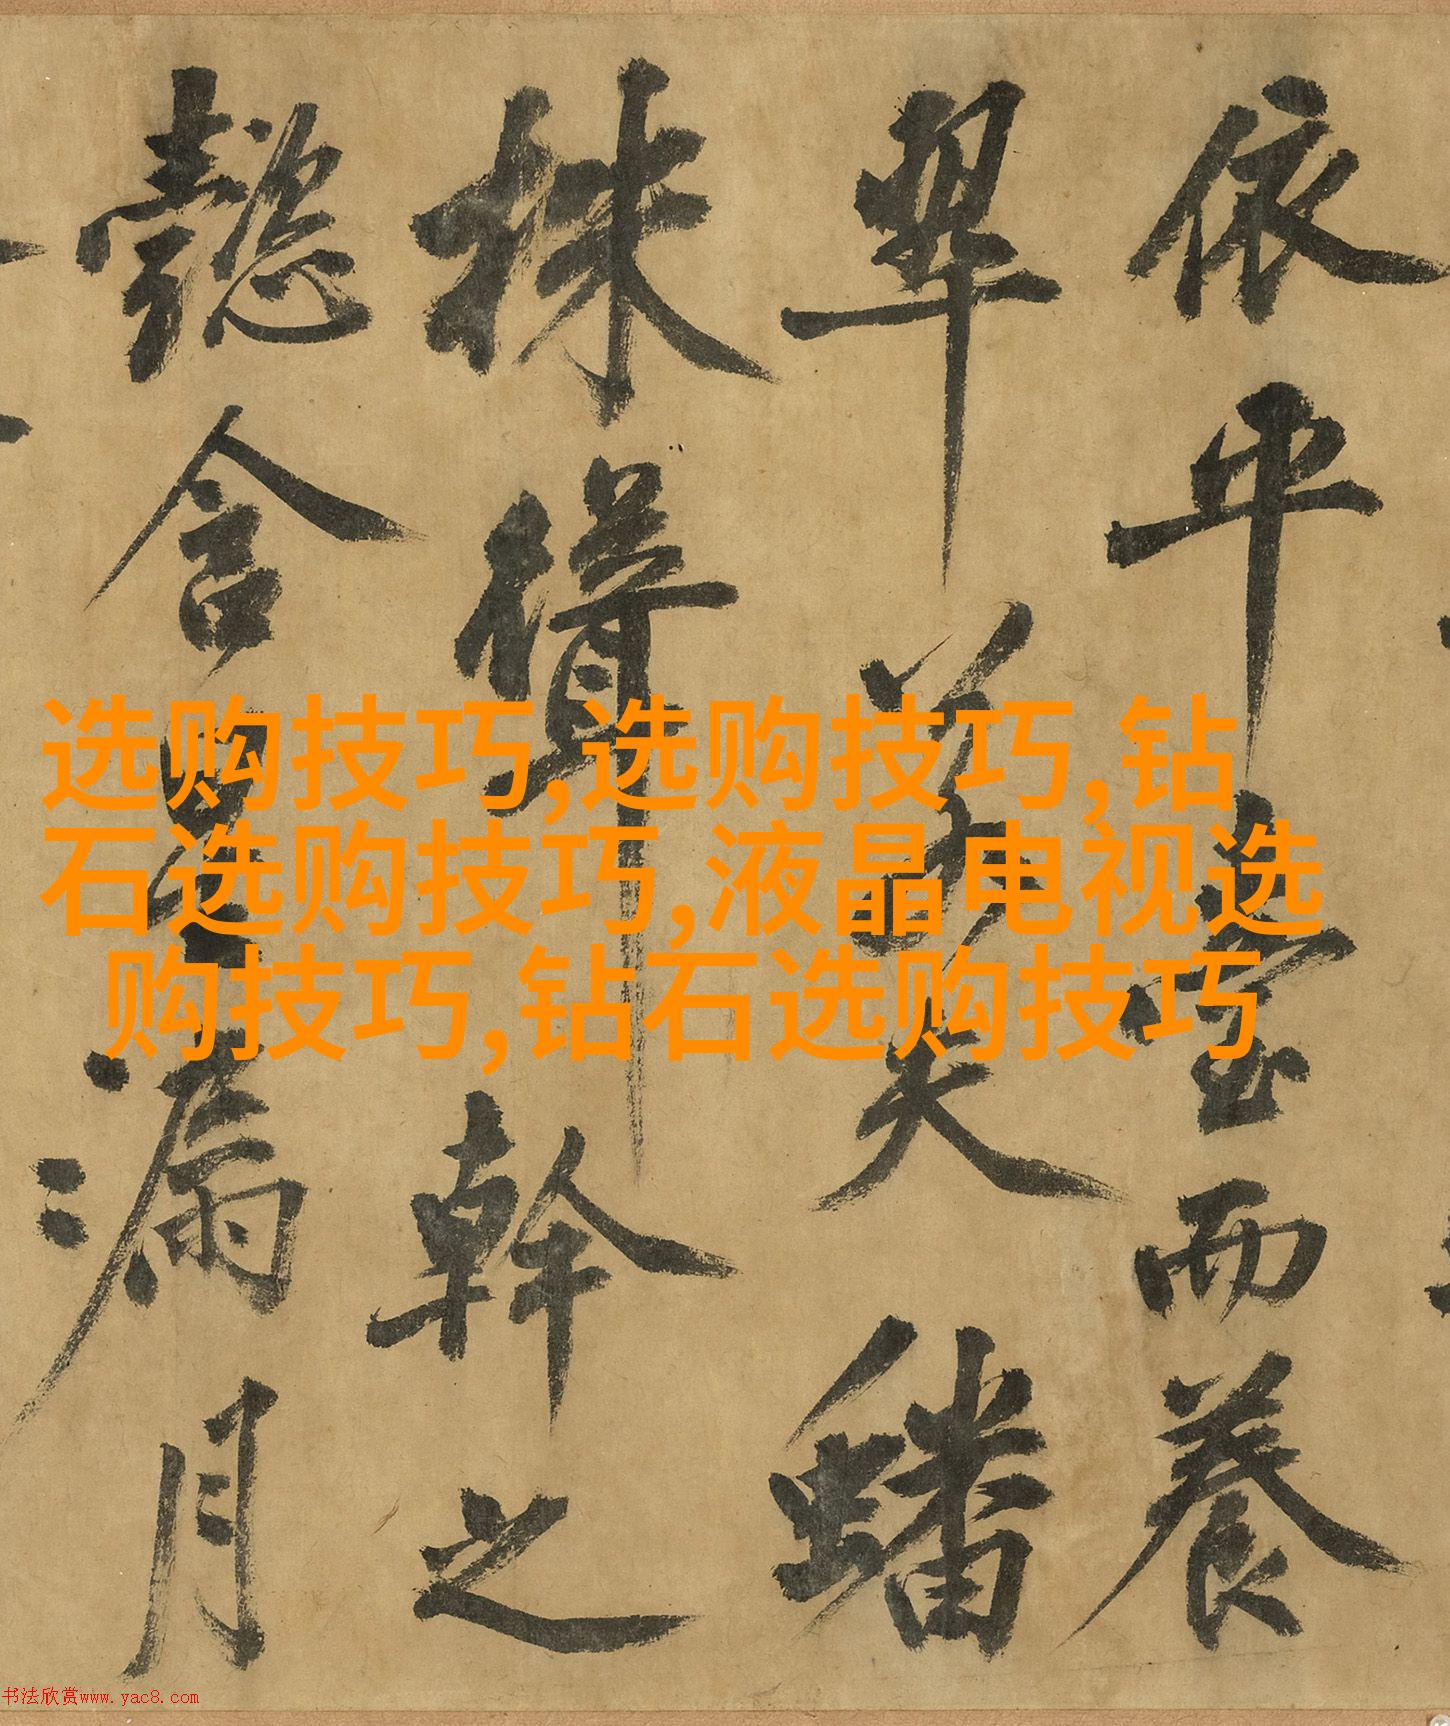 依平臺而養
翠若夫蟠
株聳幹之
懿含星漏月
选购技巧,选购技巧,钻
石选购技巧,液晶电视选
购技巧,钻石选购技巧
书法欣赏www.yac8.com